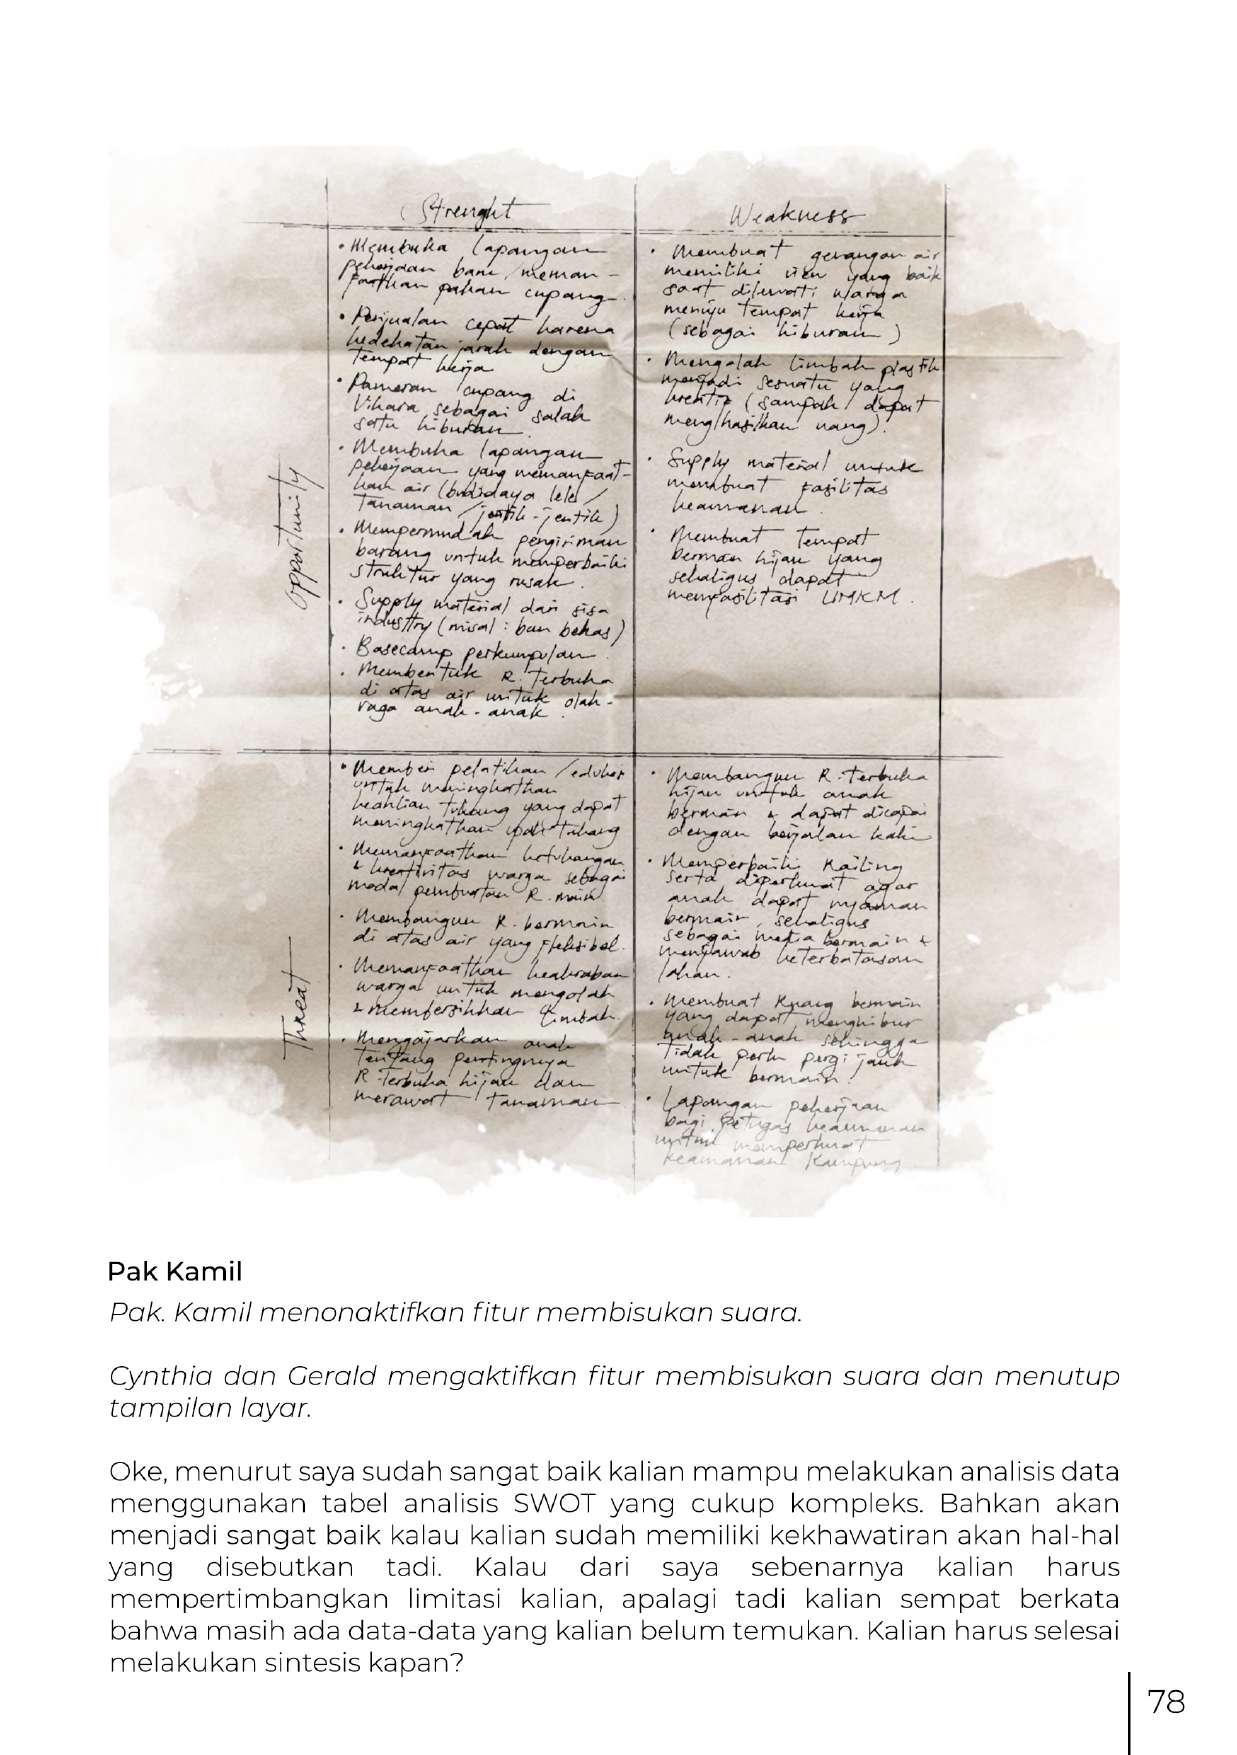 Strenght
Weakness
Opportunity
• Membuka lapangan
pekerjaan baru, meman-
faatkan pakan cupang
• Penjualan cepat karena
kedekatan jarak dengan
tempat kerja
• Pameran cupang di
Vihara sebagai salah
satu hiburan
• Membuka lapangan
pekerjaan yang memanfaat-
kan air (budidaya lele /
tanaman / jentik-jentik)
• Mempermudah pengiriman
barang untuk memperbaiki
struktur yang rusak.
• Supply material dari sisa
industry (misal : ban bekas)
• Basecamp perkumpulan
• Membentuk R. Terbuka
di atas air untuk olah-
raga anak-anak.
• Membuat genangan air
memiliki view yang baik
saat dilewati warga
menuju tempat kerja
(sebagai hiburan)
• Mengolah limbah plastik
menjadi sesuatu yang
kreatif (sampah dapat
menghasilkan uang).
• Supply material untuk
membuat fasilitas
keamanan.
• Membuat tempat
bermain hijau yang
sekaligus dapat
memfasilitasi UMKM.
Threat
• Memberi pelatihan / edukasi
untuk meningkatkan
keahlian tukang yang dapat
meningkatkan upah tukang
• Memanfaatkan ketukangan
& kreativitas warga sebagai
modal pembuatan R. main
• Membangun R. bermain
di atas air yang fleksibel.
• Memanfaatkan keakraban
warga untuk mengolah
& membersihkan limbah.
• Mengajarkan anak
tentang pentingnya
R. Terbuka hijau dan
merawat tanaman
• Membangun R. Terbuka
hijau untuk anak
bermain & dapat dicapai
dengan berjalan kaki
• Memperbaiki Railing
serta diperkuat agar
anak dapat nyaman
bermain, sekaligus
sebagai media bermain &
menjawab keterbatasan
lahan.
• Membuat Ruang bermain
yang dapat menghibur
anak-anak sehingga
tidak perlu pergi jauh
untuk bermain.
• Lapangan pekerjaan
bagi petugas keamanan
untuk memperkuat
keamanan Kampung
Pak Kamil
Pak. Kamil menonaktifkan fitur membisukan suara.
Cynthia dan Gerald mengaktifkan fitur membisukan suara dan menutup
tampilan layar.
Oke, menurut saya sudah sangat baik kalian mampu melakukan analisis data
menggunakan tabel analisis SWOT yang cukup kompleks. Bahkan akan
menjadi sangat baik kalau kalian sudah memiliki kekhawatiran akan hal-hal
yang disebutkan tadi. Kalau dari saya sebenarnya kalian harus
mempertimbangkan limitasi kalian, apalagi tadi kalian sempat berkata
bahwa masih ada data-data yang kalian belum temukan. Kalian harus selesai
melakukan sintesis kapan?
78